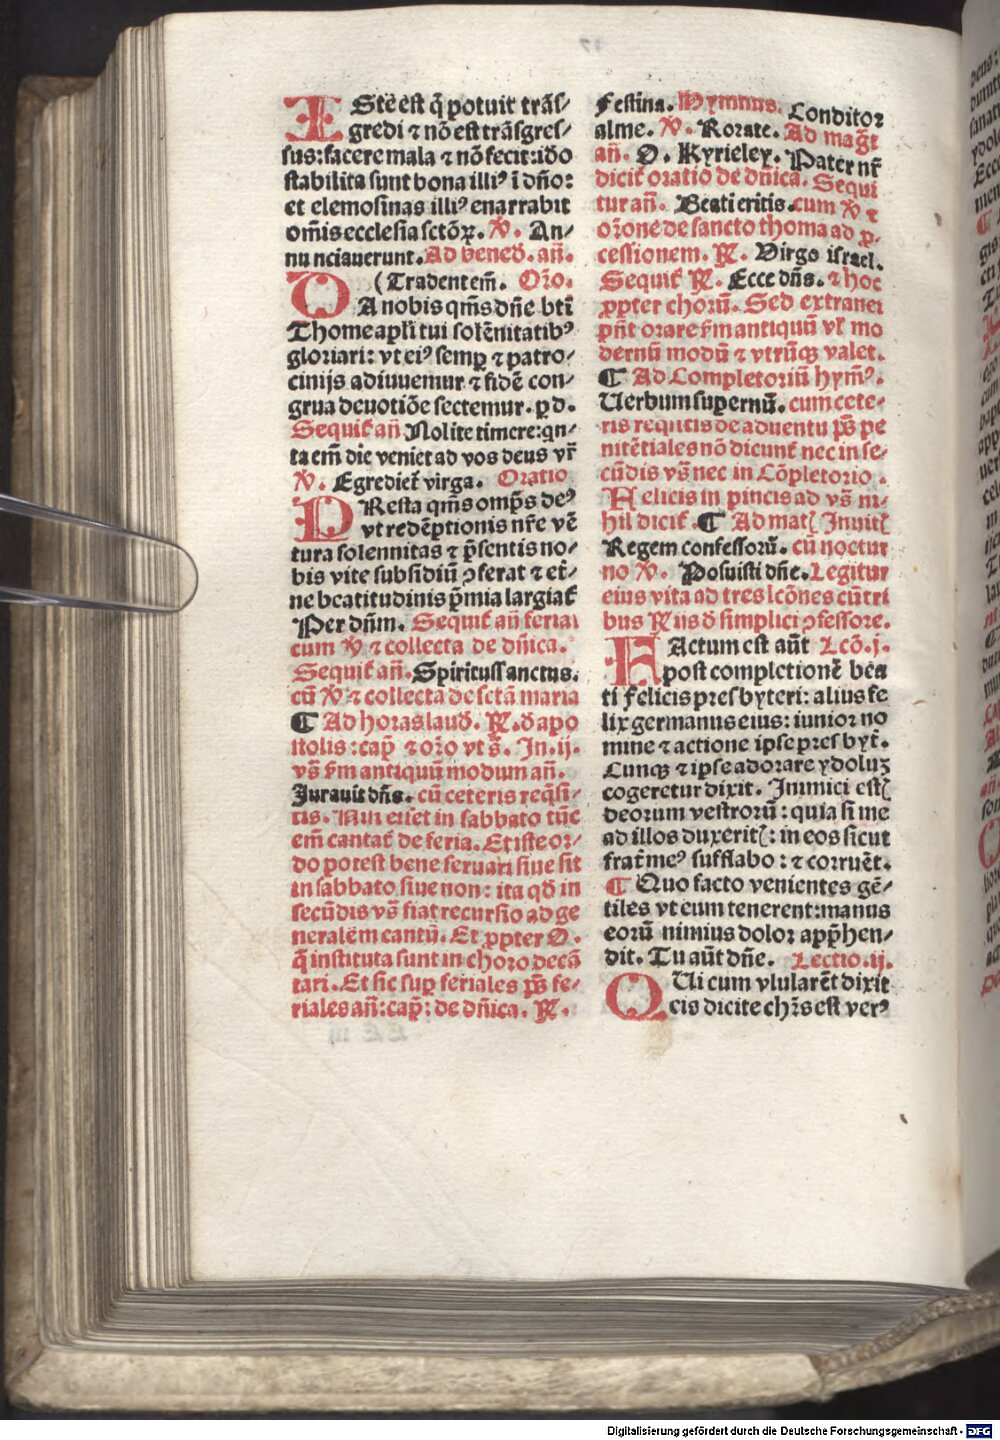 ISte est q̄ potuit trās⸗
gredi ⁊ nō est trāsgres⸗
sus: facere mala ⁊ nō fecit: ido
stabilita sunt bona illiꝰ ī dño:
et elemosinas illiꝰ enarrabit
om̄is ecclesia sctōꝝ. ℣. An⸗
nunciauerunt. Ad bened. an̄.
O (Tradentem̄. Orō.
DA nobis qm̄s dn̄e bti
Thome apl̄i tui solēnitatibꝰ
gloriari: vt eiꝰ semꝑ ⁊ patro⸗
cinijs adiuuemur ⁊ fidē con⸗
grua deuotiōe sectemur. ꝑ d.
Sequit̄ an̄ Nolite timere: qn⸗
ta em̄ die veniet ad vos deus vr̄
℣. Egrediet̄ virga. Oratio
PResta qm̄s omp̄s deꝰ
vt redēptionis nr̄e vē
tura solennitas ⁊ p̄sentis no⸗
bis vite subsidiū ꝯferat ⁊ et̄⸗
ne beatitudinis p̄mia largiat̄
Per dn̄m. Sequit̄ an̄ feriai
cum ℣ ⁊ collecta de dn̄ica.
Sequit̄ an̄. Spiritus sanctus.
cū ℣ ⁊ collecta de sctā maria
¶ Ad horas laud. ℟. d apo
stolis: cap̄ ⁊ orō vt s̄. In. ij.
vs̄ ẜm antiquū modum an̄.
Jurauit dn̄s. cū ceteris reqsi⸗
tis. Nisi esset in sabbato tūc
em̄ cantat̄ de feria. Et iste or⸗
do potest bene seruari siue sit
in sabbato siue non: ita qd in
secūdis vs̄ fiat recursio ad ge
neralem cantū. Et ꝓpter O.
q̄ instituta sunt in choro decā
tari. Et sic suꝑ feriales ps̄ fe⸗
riales an̄: cap̄: de dn̄ica. ℟.
Festina. Hymnus. Conditor
alme. ℣. Rorate. Ad mag̅t
an̄. O. Kyrieley. Pater nr̄
dicit̄ oratio de dn̄ica. Sequi
tur an̄. Beati eritis. cum ℣ ⁊
orōne de sancto thoma ad ꝓ⸗
cessionem. ℟. Virgo israel.
Sequit̄ ℟. Ecce dn̄s. ⁊ hoc
ꝓpter chorū. Sed extranei
pn̄t orare ẜm antiquū vl̄ mo
dernū modū ⁊ vtrūqꝫ valet.
¶ Ad Completoriū hymꝰ.
Uerbum supernū. cum cete⸗
ris reqsitis de aduentu ps̄ pe
nitētiales nō dicunt̄ nec in se⸗
cūdis vs̄ nec in Cōpletorio.
Felicis in pincis ad vs̄ ni⸗
hil dicit̄. ¶ Ad mat̄ Inuit̄
Regem confessorū. cū noctur
no ℣. Posuisti dn̄e. Legitur
eius vita ad tres lcōnes cū tri
bus ℟iis d simplici ꝯfessore.
FActum est aūt Lcō. j.
post completionē bea
ti felicis presbyteri: alius fe
lix germanus eius: iunior no
mine ⁊ actione ipse presbyt̄.
Cunqꝫ ⁊ ipse adorare ydoluꝫ
cogeretur dixit. Inimici est̄
deorum vestrorū: quia si me
ad illos duxerit̄: in eos sicut
frat̄ meꝰ sufflabo: ⁊ corruēt.
¶ Quo facto venientes gē⸗
tiles vt eum tenerent: manus
eorū nimius dolor app̄hen⸗
dit. Tu aūt dn̄e. Lectio. ij.
QUi cum vlularēt dixit
eis dicite chr̄s est verꝰ
Digitalisierung gefördert durch die Deutsche Forschungsgemeinschaft - DFG